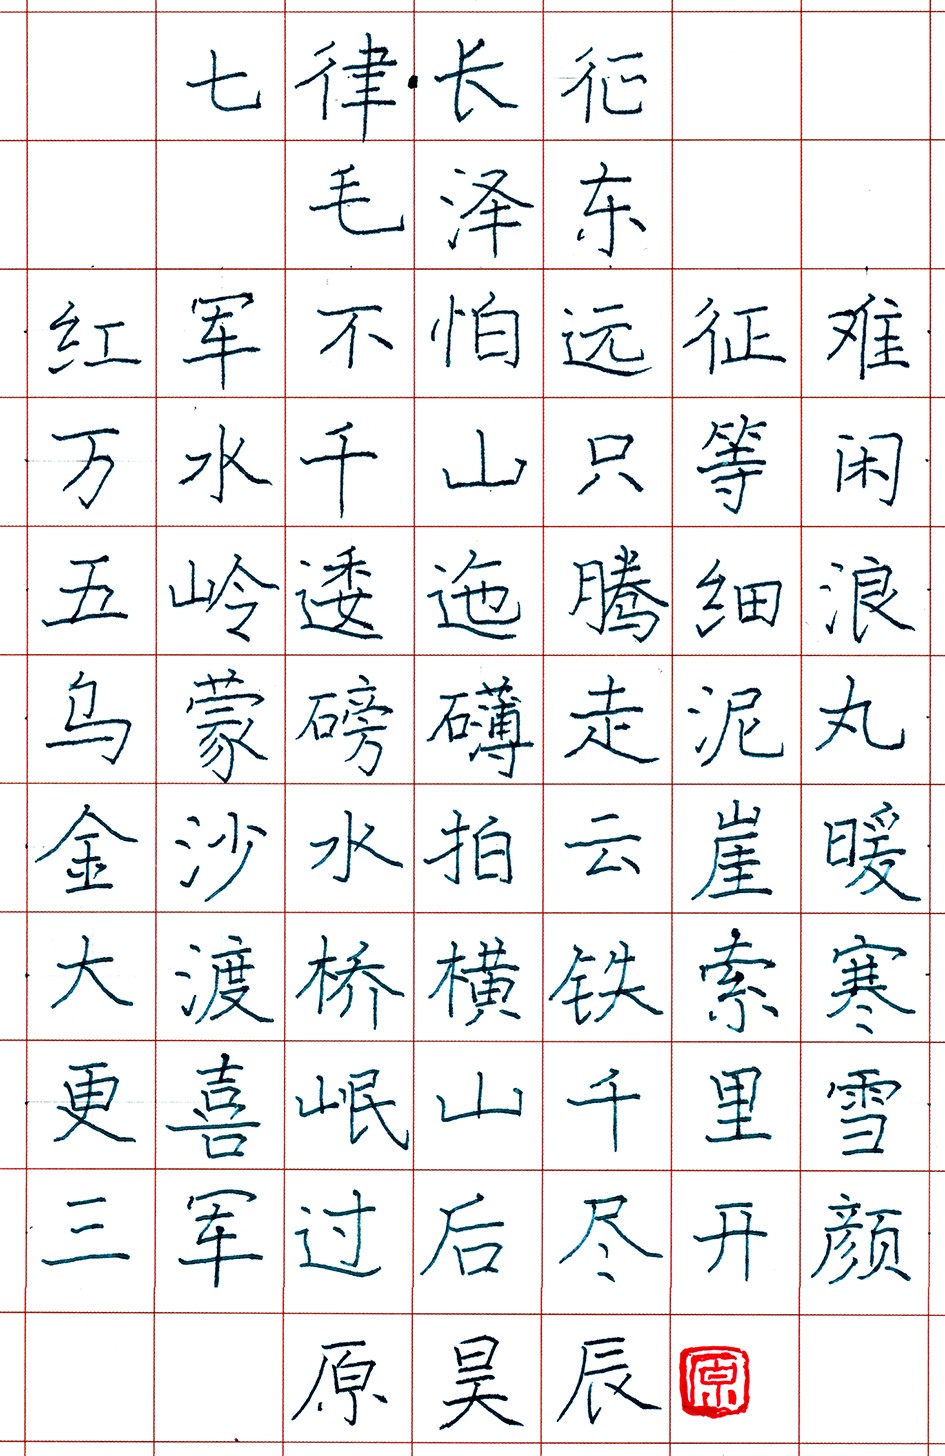 七律·长征
毛泽东
红军不怕远征难
万水千山只等闲
五岭逶迤腾细浪
乌蒙磅礴走泥丸
金沙水拍云崖暖
大渡桥横铁索寒
更喜岷山千里雪
三军过后尽开颜
原昊辰 原